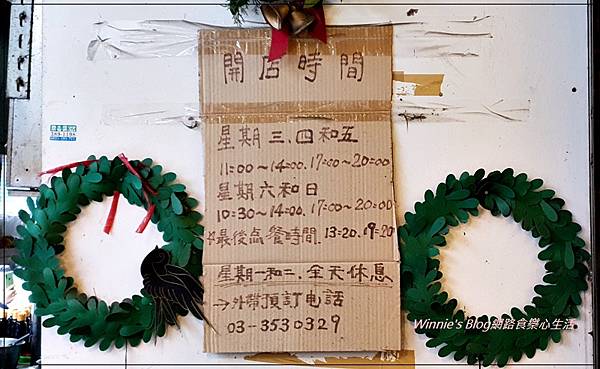 開店時間
星期三、四和五
11:00~14:00、17:00~20:00
星期六和日
10:30~14:00、17:00~20:00
※最後点餐時間、13:20、19:20
星期一和二、全天休息
→外帶預訂電話
03-3530329
Winnie's Blog網路食樂心生活